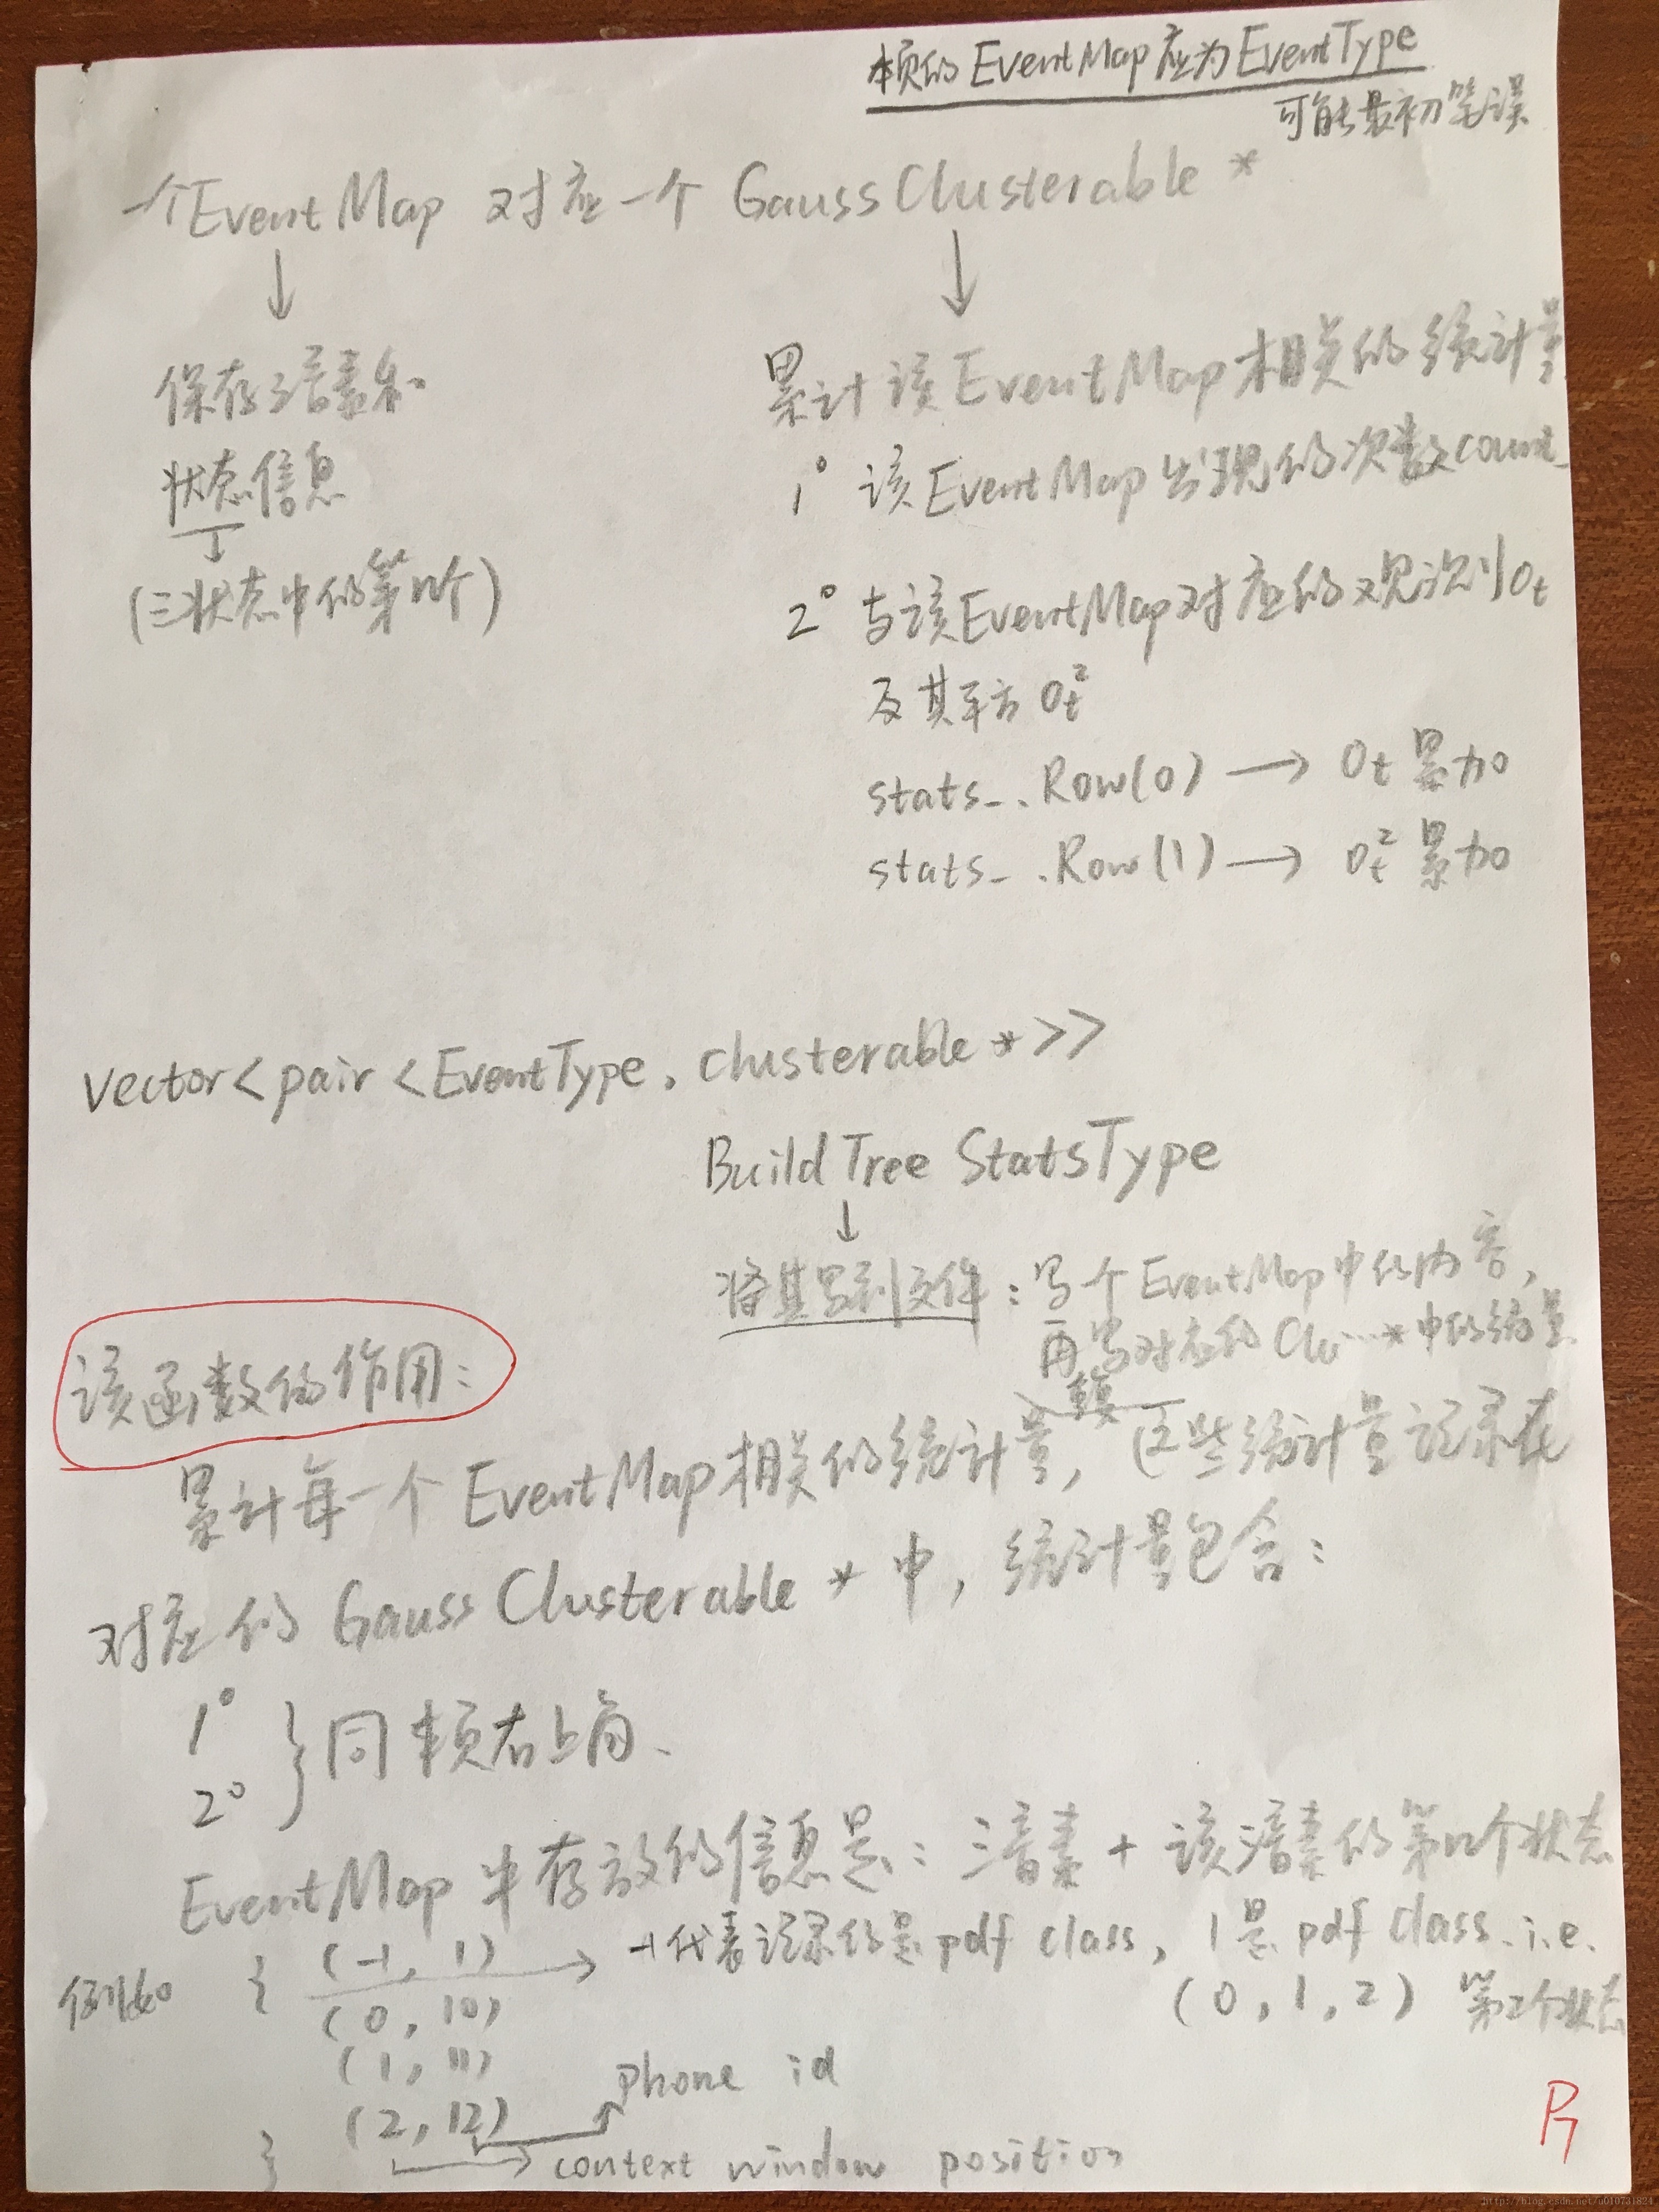 本页的EventMap应为EventType
可能最初笔误
一个EventMap 对应一个 GaussClusterable *
↓ ↓
保存三音素和
状态信息
(三状态中的第几个)
累计该EventMap相关的统计量
1° 该EventMap出现的次数count_
2° 与该EventMap对应的观测Ot
及其平方Ot²
stats_.Row(0) → Ot 累加
stats_.Row(1) → Ot² 累加
vector<pair<EventType, clusterable *>>
BuildTreeStatsType
↓
将其写到文件: 写个EventMap中的内容,
再写对应的Clu…*中的统计量
该函数的作用:
累计每一个EventMap相关的统计量, 这些统计量记录在
对应的 GaussClusterable * 中, 统计量包含:
1°
2° } 同本页右上角.
EventMap中存放的信息是: 三音素 + 该三音素的第几个状态
例如 { (-1, 1) → -1代表记录的是pdf class, 1是pdf class. i.e.
(0, 10) (0, 1, 2) 第2个状态
(1, 11)
(2, 12) → phone id
} → context window position
P7
http://blog.csdn.net/u010731824